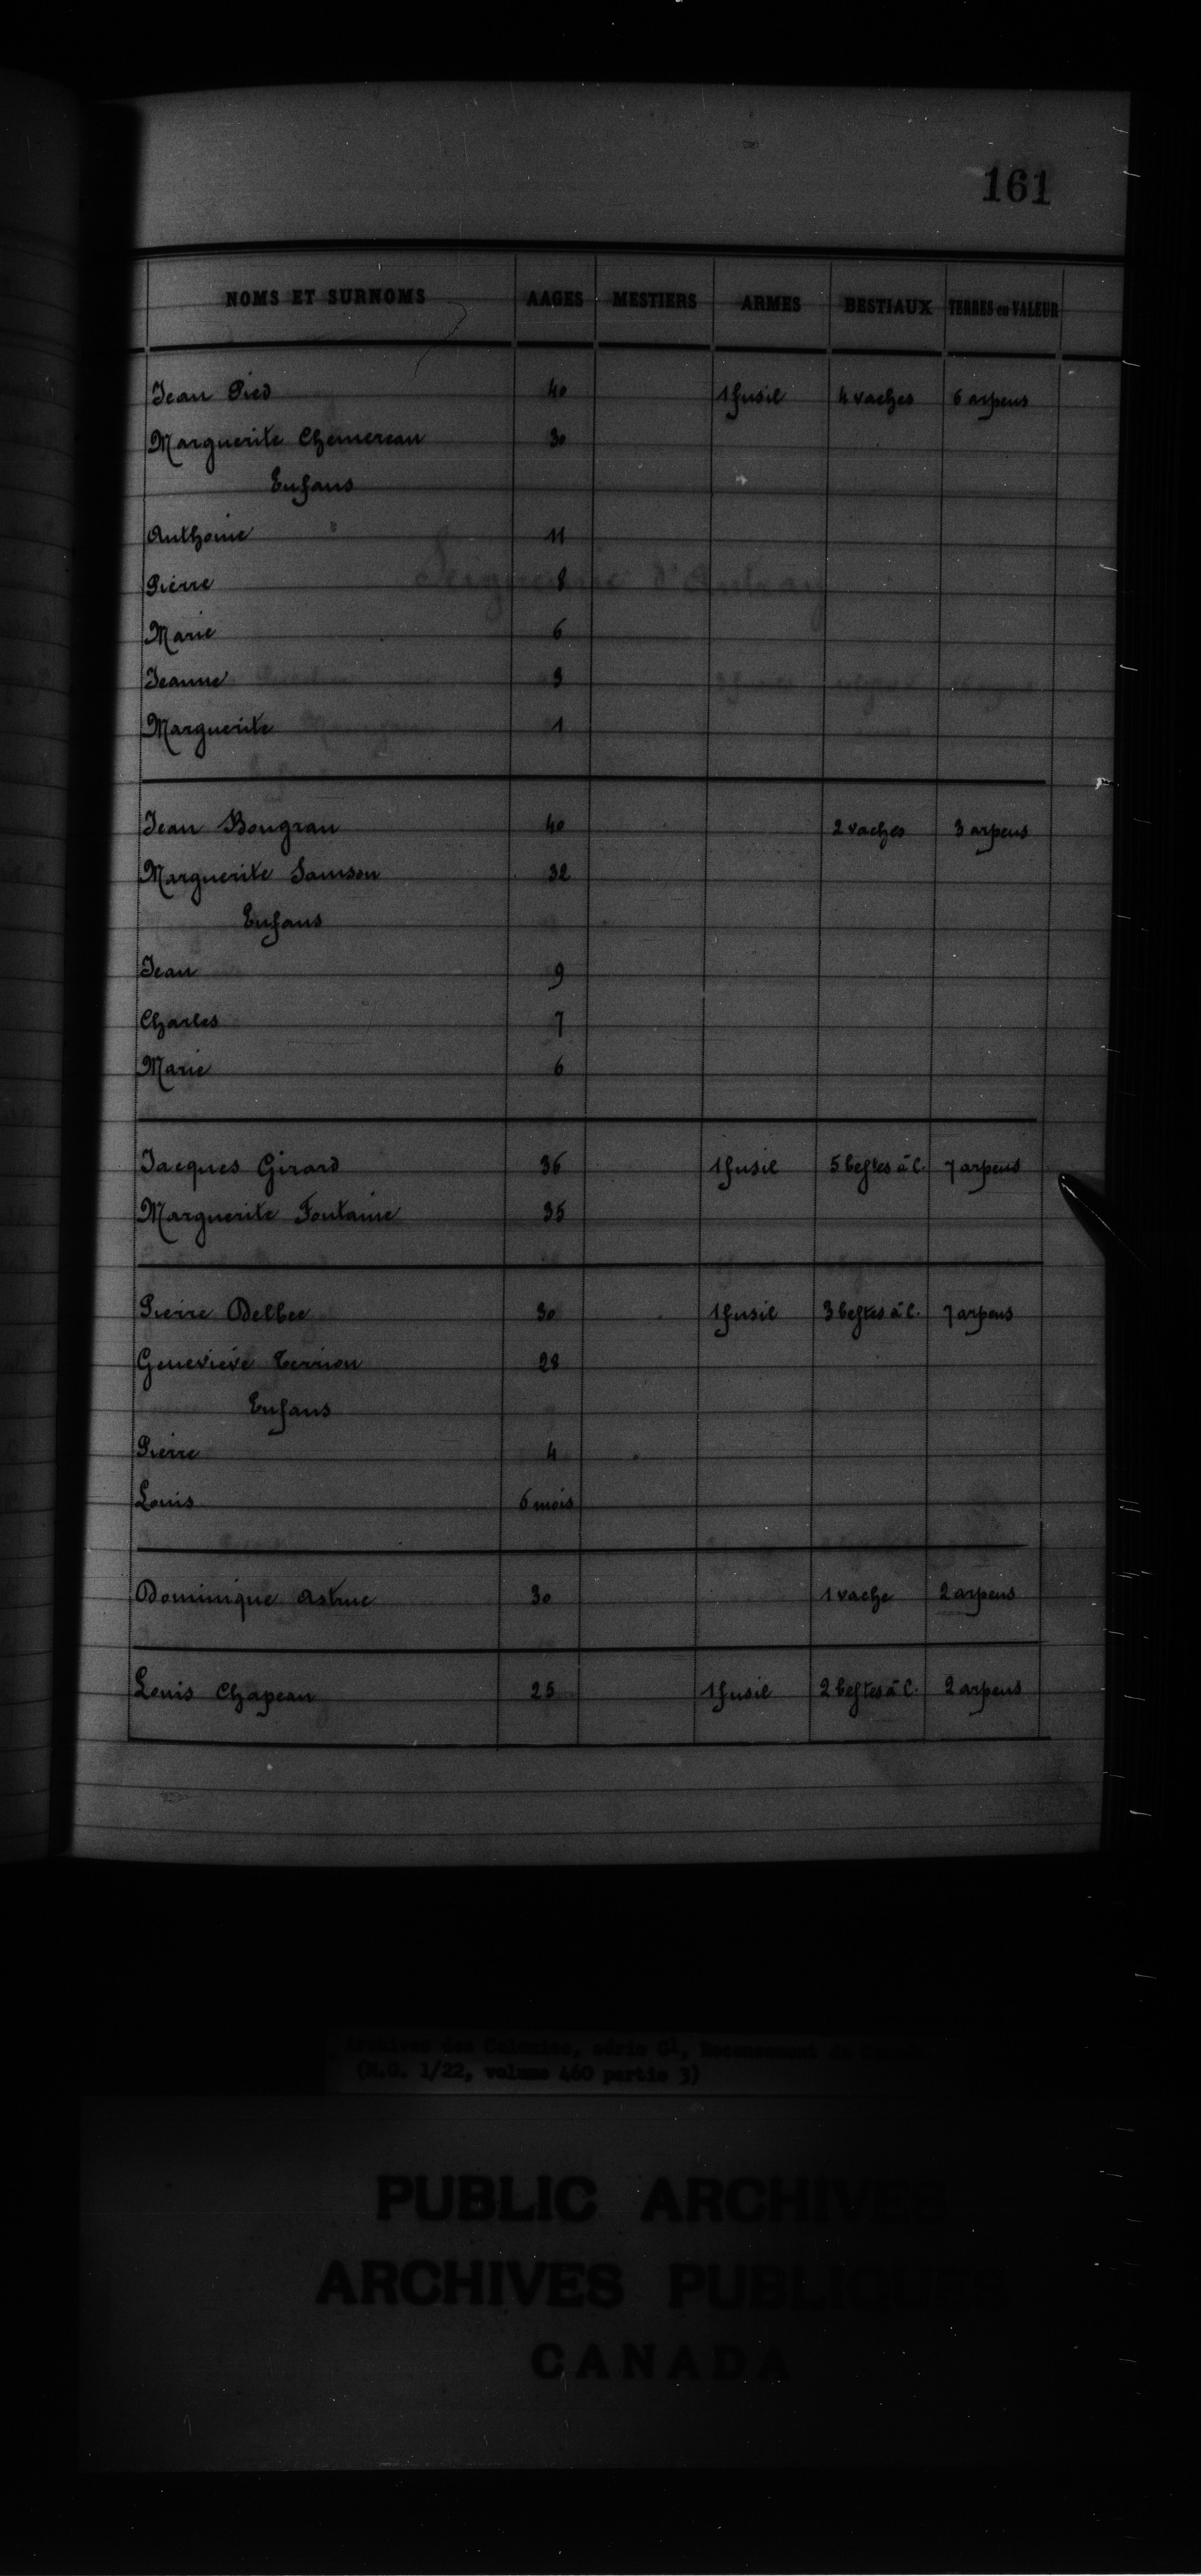 161
NOMS ET SURNOMS AAGES MESTIERS ARMES BESTIAUX TERRES en VALEUR
Jean Pied 40 1 fusil 4 vaches 6 arpens
Marguerite Chemereau 30
Enfans
Anthoine 11
Pierre 8
Marie 6
Jeanne 3
Marguerite 1
Jean Bougran 40 2 vaches 3 arpens
Marguerite Samson 32
Enfans
Jean 9
Charles 7
Marie 6
Jacques Girard 36 1 fusil 5 bestes à C. 7 arpens
Marguerite Fontaine 35
Pierre Delbec 30 1 fusil 3 bestes à C. 7 arpens
Geneviève Terrion 28
Enfans
Pierre 4
Louis 6 mois
Dominique Astruc 30 1 vache 2 arpens
Louis Chapeau 25 1 fusil 2 bestes à C. 2 arpens
Archives des Colonies, série G1, Recensement du Canada
(M.G. 1/22, volume 460 partie 3)
PUBLIC ARCHIVES
ARCHIVES PUBLIQUES
CANADA